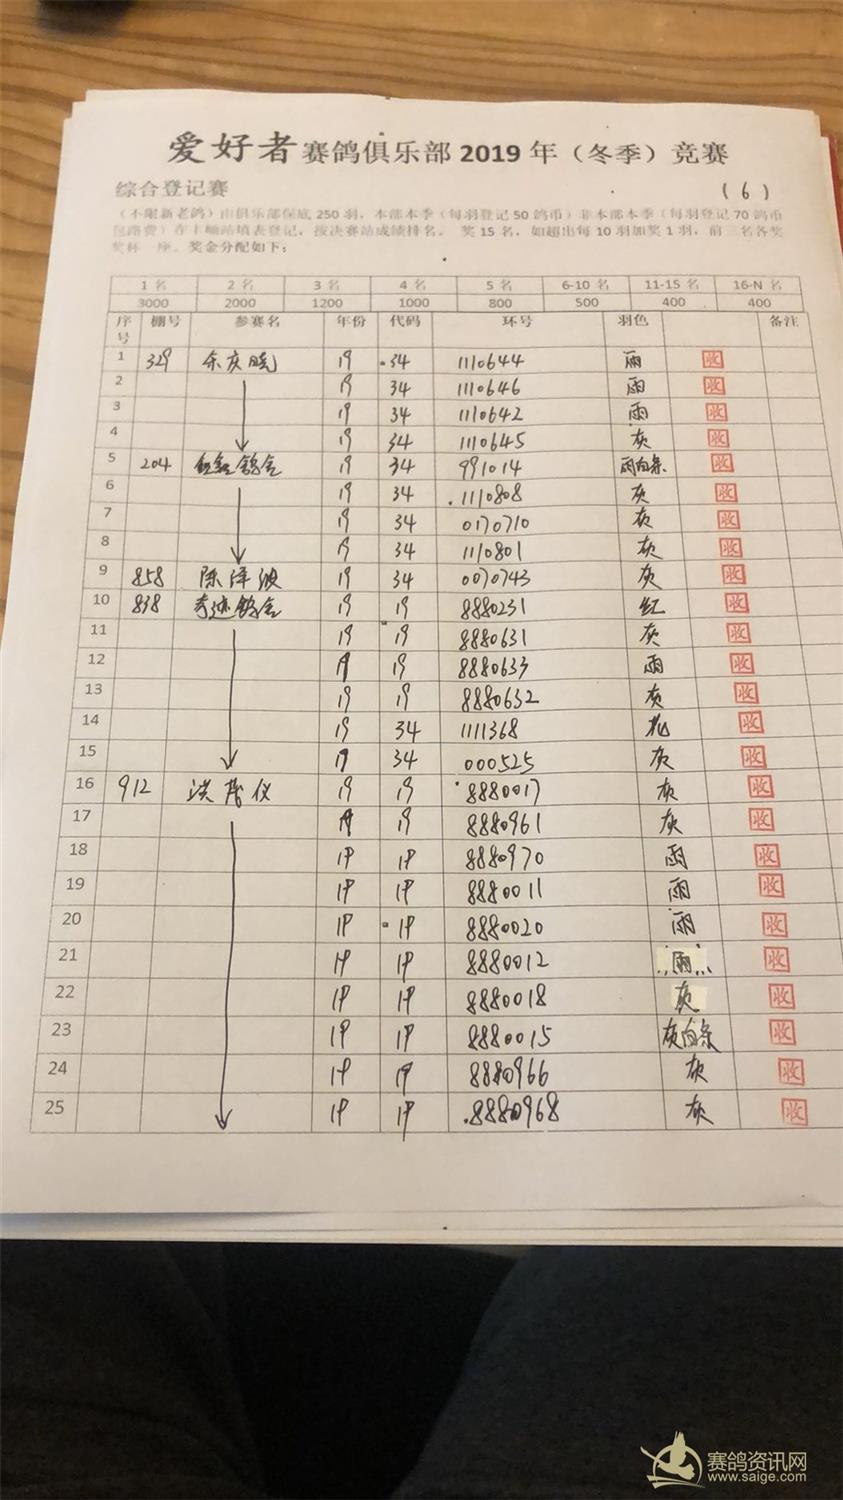 爱好者赛鸽俱乐部 2019 年（冬季）竞赛
综合登记赛 （6）
（不限新老鸽）由俱乐部保底 250 羽，本部本季（每羽登记 50 鸽币）非本部本季（每羽登记 70 鸽币
包路费）在上 站填表登记，按决赛站成绩排名。 奖 15 名，如超出每 10 羽加奖 1 羽，前三名各奖
奖杯一座。奖金分配如下：
1 名 2 名 3 名 4 名 5 名 6-10 名 11-15 名 16-N 名
3000 2000 1200 1000 800 500 400 400
序号 棚号 参赛名 年份 代码 环号 羽色 备注
1 329 余庆晓 19 34 1110644 雨 收
2 19 34 1110646 雨 收
3 19 34 1110642 雨 收
4 19 34 1110645 灰 收
5 204 鸽舍 19 34 991014 雨白条 收
6 19 34 1110808 灰 收
7 19 34 0170710 灰 收
8 19 34 1110801 灰 收
9 858 陈泽波 19 34 0070743 灰 收
10 838 奇迹鸽舍 19 19 8880231 红 收
11 19 19 8880631 灰 收
12 19 19 8880633 雨 收
13 19 19 8880632 灰 收
14 19 34 1111368 花 收
15 19 34 000525 灰 收
16 912 洪茂仪 19 19 8880017 灰 收
17 19 19 8880961 灰 收
18 19 19 8880970 雨 收
19 19 19 8880011 雨 收
20 19 19 8880020 雨 收
21 19 19 8880012 雨 收
22 19 19 8880018 灰 收
23 19 19 8880015 灰白条 收
24 19 19 8880966 灰 收
25 19 19 8880968 灰 收
赛鸽资讯网
www.saige.com